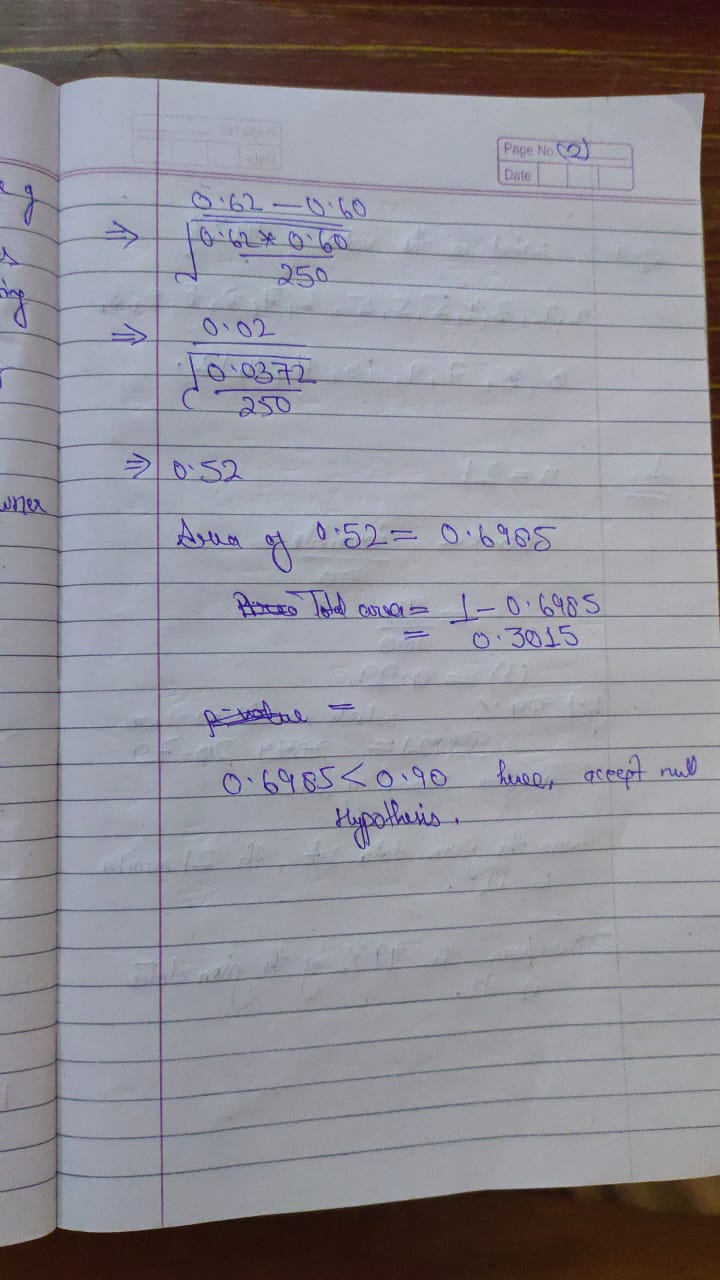 Page No. (2)
Date
0.62 - 0.60
⇒ √ 0.62 * 0.60
250
⇒ 0.02
√ 0.0372
250
⇒ 0.52
Area of 0.52 = 0.6985
Total area = 1 - 0.6985
= 0.3015
p-value =
0.6985 < 0.90 hence, accept null
Hypothesis.